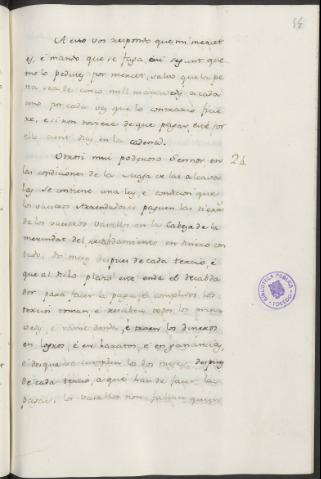 A esto vos respondo que mi mercet
es, é mando que se faga, asi segunt que
me lo pedides por mercet, salvo que la pe
na sea de cinco mill maravedis a cada
uno por cada ves que lo contrario ficie
re, é si non toviere de que pagar, esté por
ello cient dias en la cadena.
Otrosi mui poderoso Sennor en 21
las condiciones de la Masa de las alcavas
las se contiene una ley, é condicion que
los vuestros Arrendadores paguen las
de los vuestros vasallos en la cabeza de la
merindat del recabdamiento en dinero con
tado, dos meses despues de cada tercio, é
que al dicho plaso esté ende el recabda
dor para facer la paga, é complidos los
tercios toman, é reciben todos los mara
vedis, é vanse dende, é traen los dineros
en logros, é en baratos, é en ganancias,
é desque se cumplen los dos meses despues
de cada tercio, a que han de facer las
pagas, los vasallos non fallan quien
BIBLIOTECA PUBLICA
TOLEDO